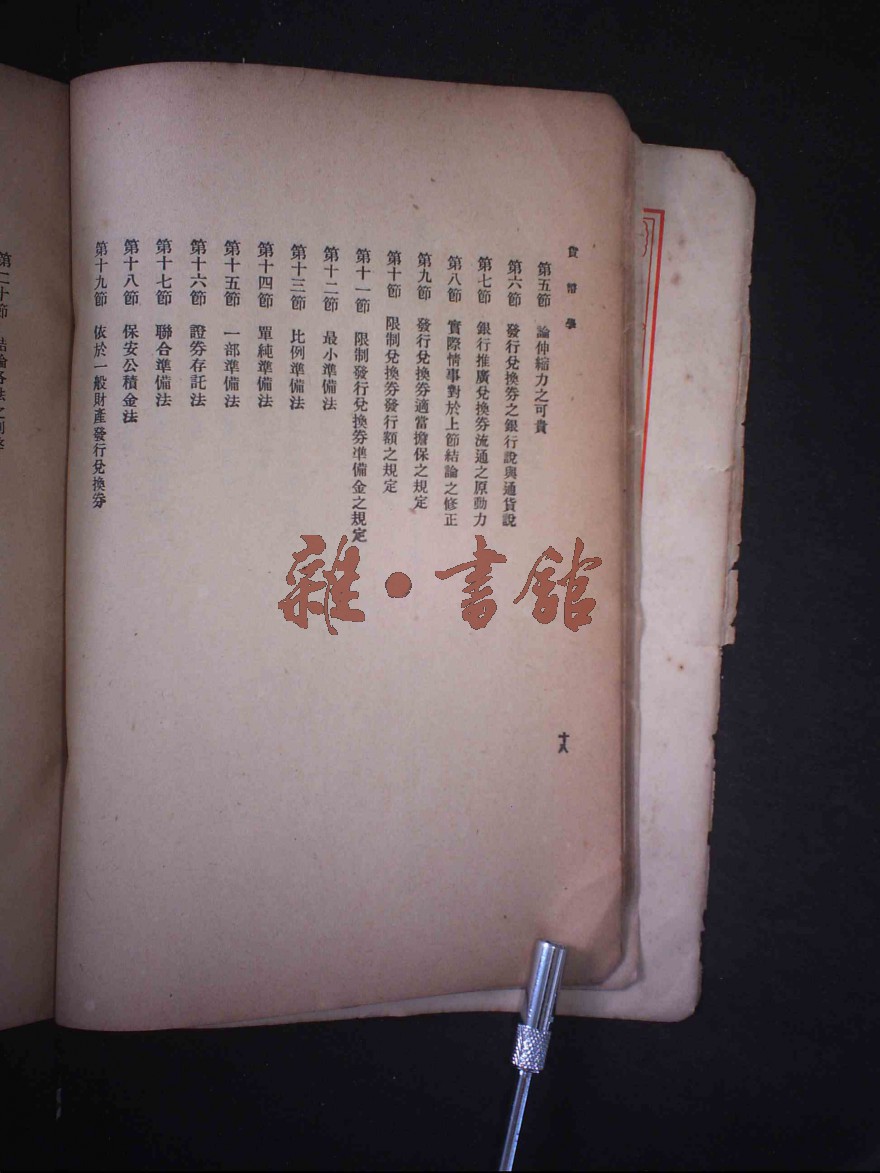 貨幣學
第五節　論伸縮力之可貴
第六節　發行兌換券之銀行說與通貨說
第七節　銀行推廣兌換券流通之原動力
第八節　實際情事對於上節結論之修正
第九節　發行兌換券適當擔保之規定
第十節　限制兌換券發行額之規定
第十一節　限制發行兌換券準備金之規定
第十二節　最小準備法
第十三節　比例準備法
第十四節　單純準備法
第十五節　一部準備法
第十六節　證券存託法
第十七節　聯合準備法
第十八節　保安公積金法
第十九節　依於一般財產發行兌換券
十八
第二十節　結論各法之利弊
雜·書館